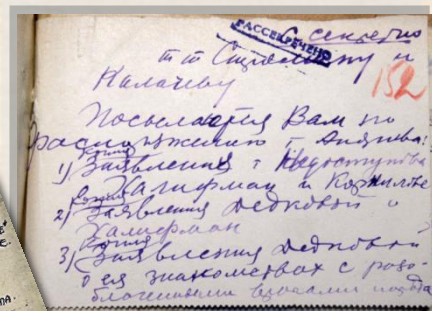 С. секретно
РАССЕКРЕЧЕНО
т т и
152
Калачеву
Посылается Вам по
распоряжению т. Андреева:
копия
1) Заявления т Недоступова
Халифман и
копия
2) Заявления Дедковой о
Халифман
копия
3) Заявления Дедковой
о ея знакомствах с разо-
блаченными врагами народа